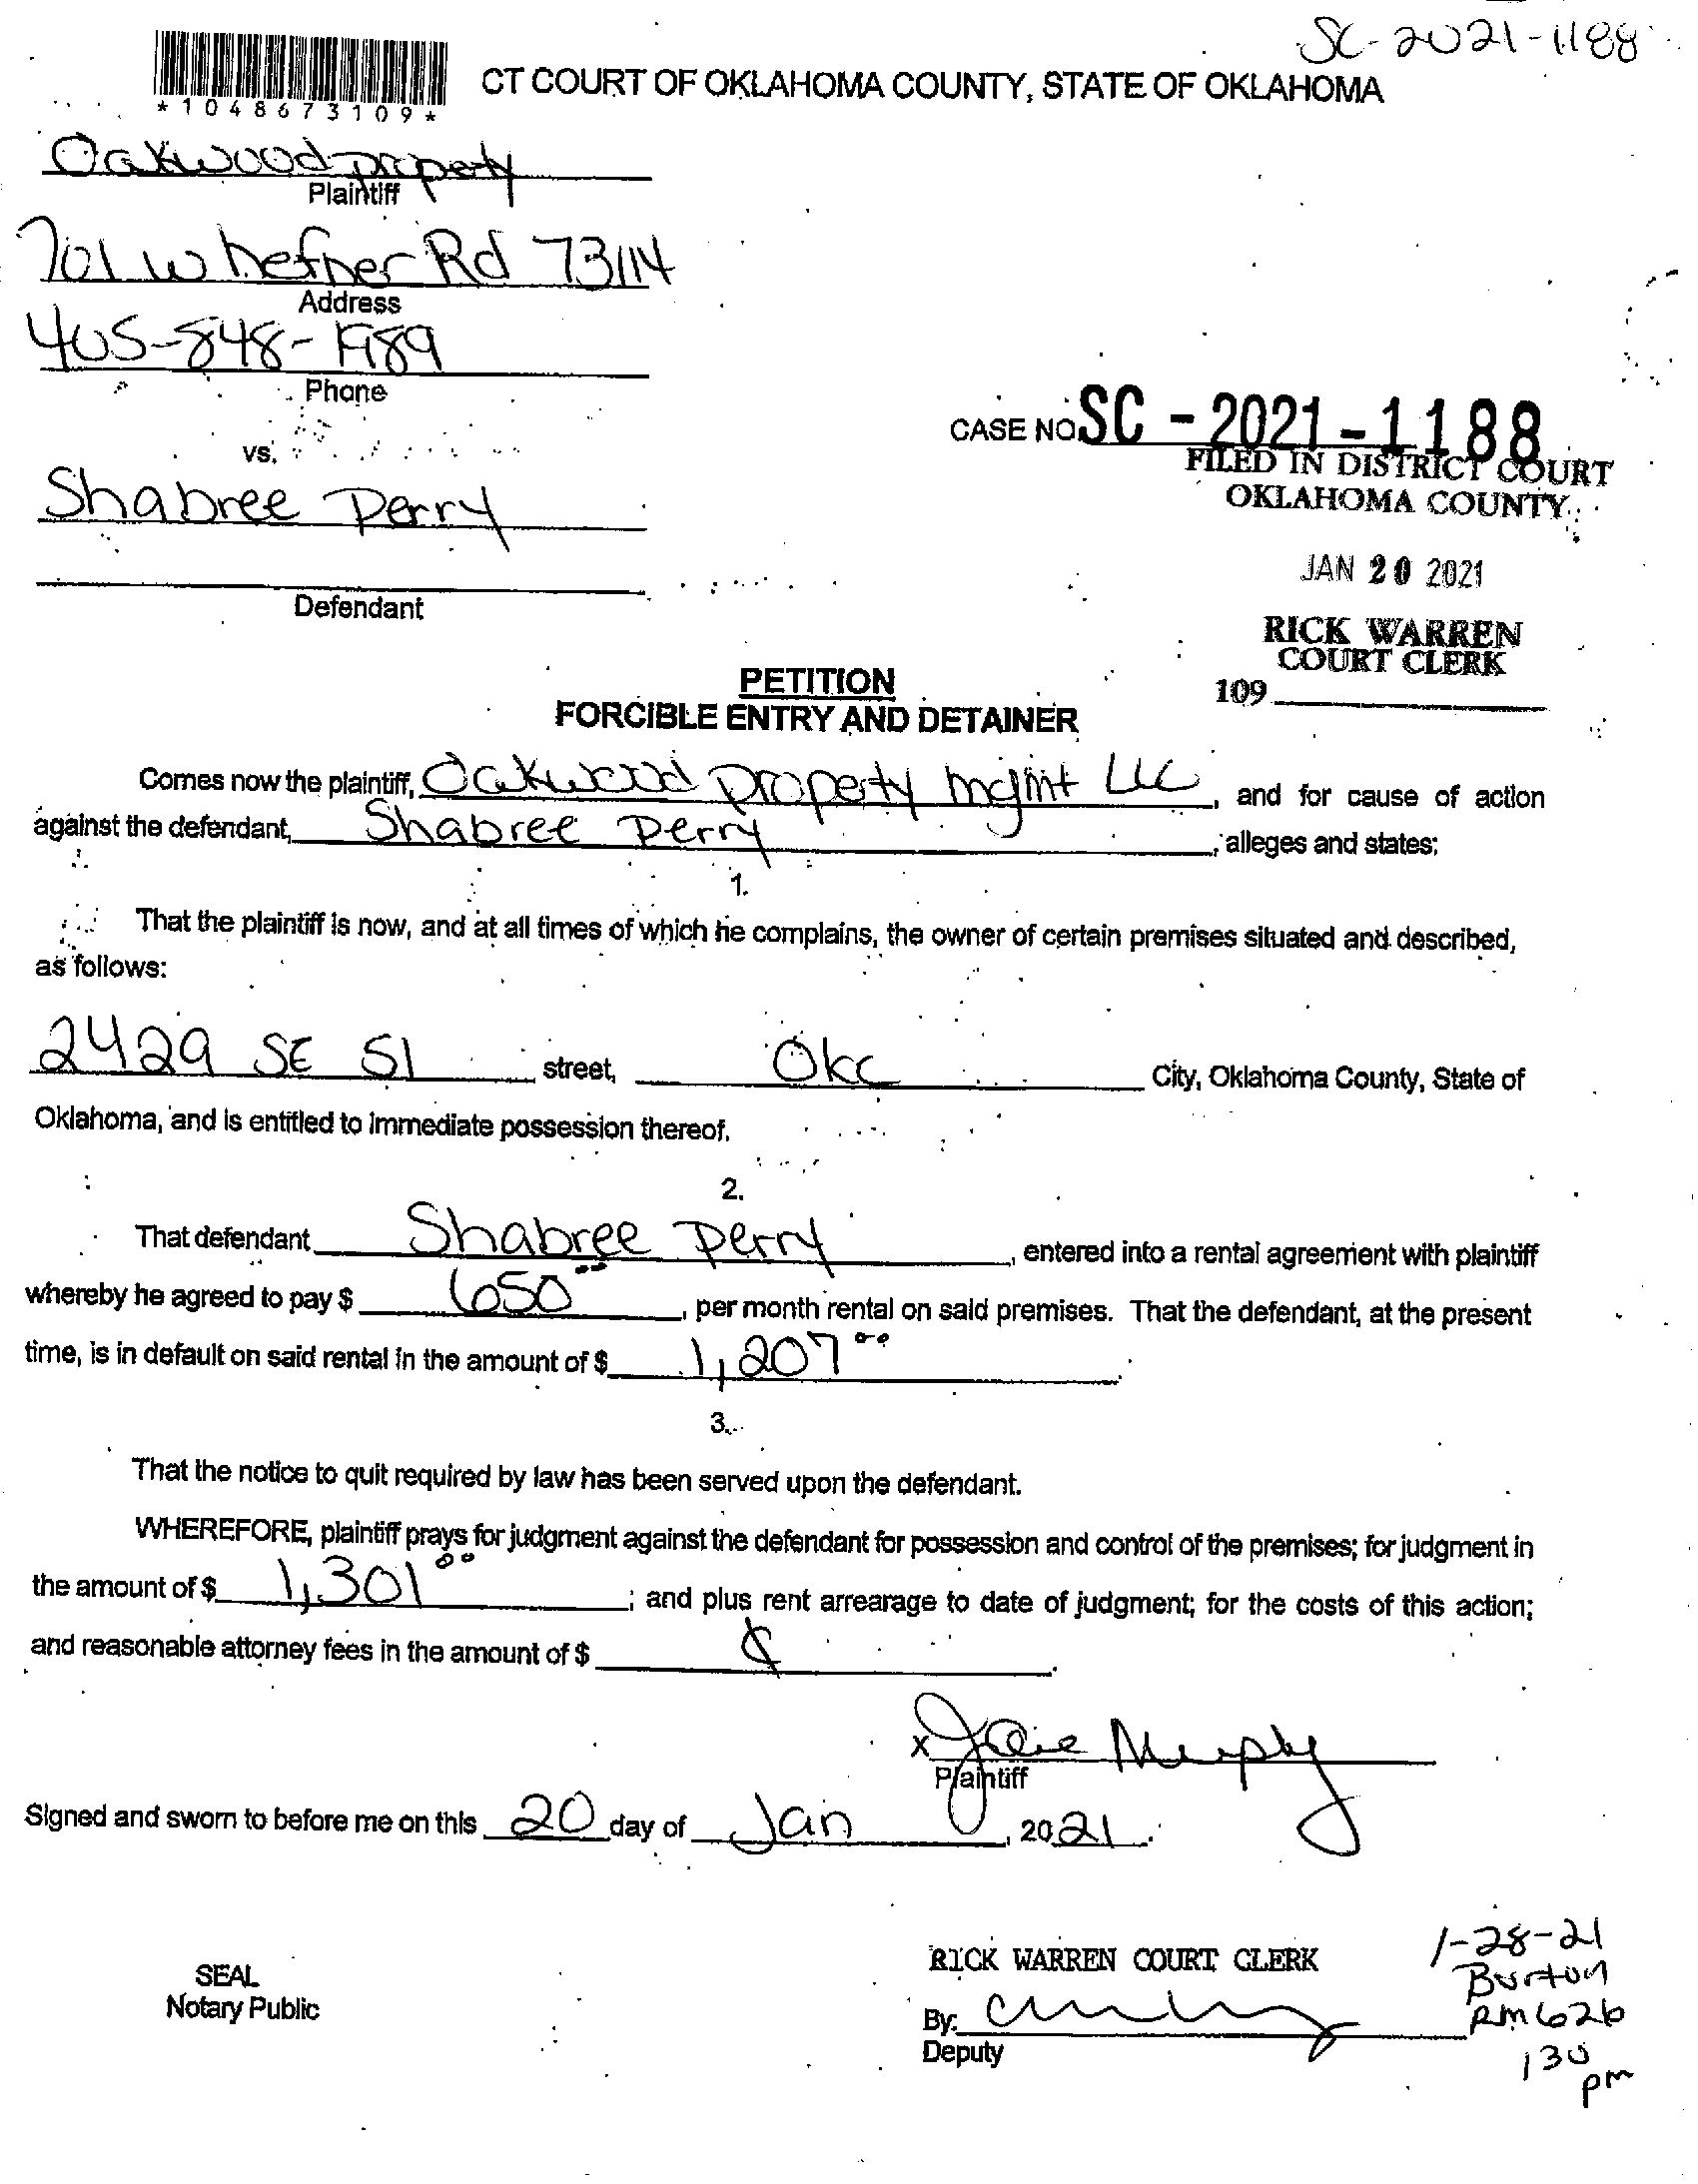 SC-2021-1188
*1048673109*
CT COURT OF OKLAHOMA COUNTY, STATE OF OKLAHOMA
Oakwood property
Plaintiff
701 W hefner Rd 73114
Address
405-848-1989
Phone
vs.
Shabree Perry
Defendant
CASE NO. SC - 2021 - 1188
FILED IN DISTRICT COURT
OKLAHOMA COUNTY
JAN 20 2021
RICK WARREN
COURT CLERK
109
PETITION
FORCIBLE ENTRY AND DETAINER
Comes now the plaintiff, Oakwood property mgmt LLC, and for cause of action
against the defendant, Shabree Perry, alleges and states:
1.
That the plaintiff is now, and at all times of which he complains, the owner of certain premises situated and described,
as follows:
2429 SE 51 street, Okc City, Oklahoma County, State of
Oklahoma, and is entitled to immediate possession thereof.
2.
That defendant Shabree Perry, entered into a rental agreement with plaintiff
whereby he agreed to pay $ 650.00, per month rental on said premises. That the defendant, at the present
time, is in default on said rental in the amount of $ 1,207.00.
3.
That the notice to quit required by law has been served upon the defendant.
WHEREFORE, plaintiff prays for judgment against the defendant for possession and control of the premises; for judgment in
the amount of $ 1,301.00; and plus rent arrearage to date of judgment; for the costs of this action;
and reasonable attorney fees in the amount of $
X Murphy
Plaintiff
Signed and sworn to before me on this 20 day of Jan, 2021.
SEAL
Notary Public
RICK WARREN COURT CLERK
By:
Deputy
1-28-21
Burton
RM 626
130
pm